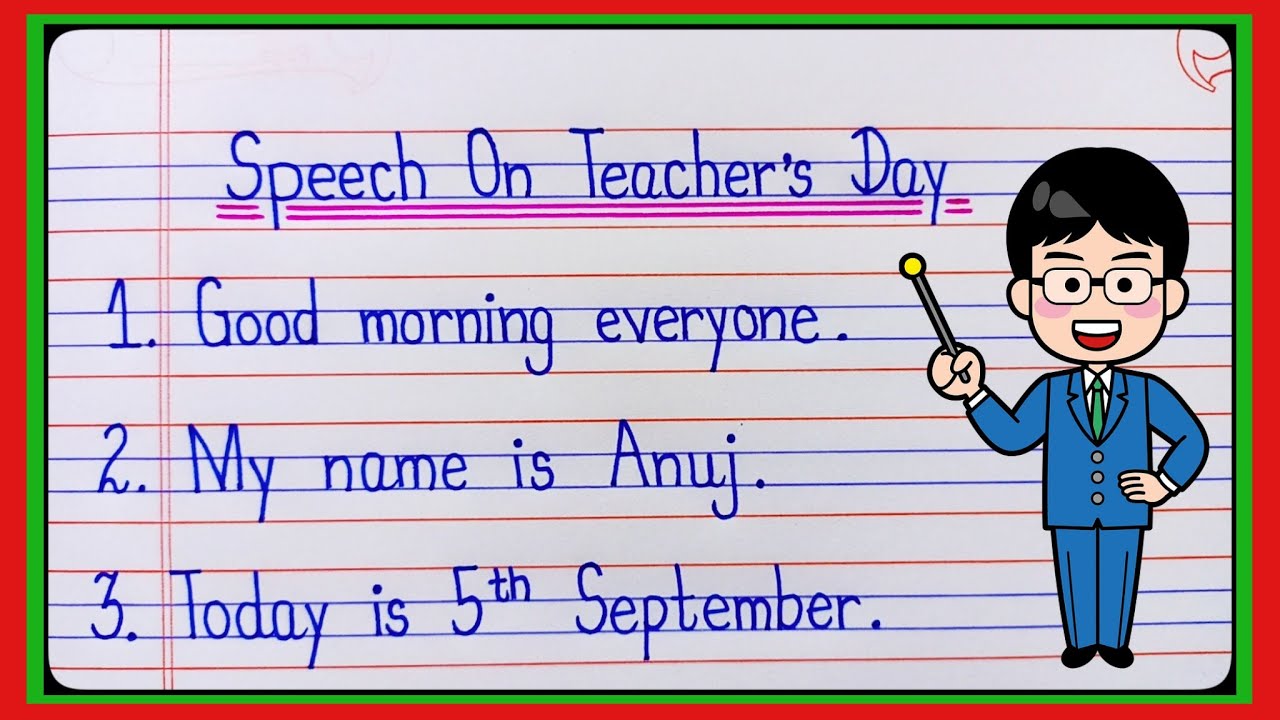 Speech On Teacher's Day
1. Good morning everyone.
2. My name is Anuj.
3. Today is 5th September.